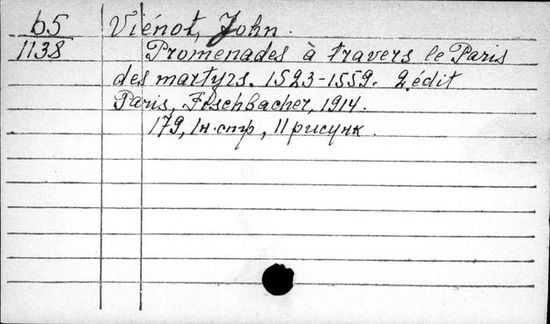 б5 Viénot, John.
1138 Promenades à travers le Paris
des martyrs. 1523-1559. 2 édit
Paris, Fischbacher, 1914.
179, 1н.стр, 11 рисунк.